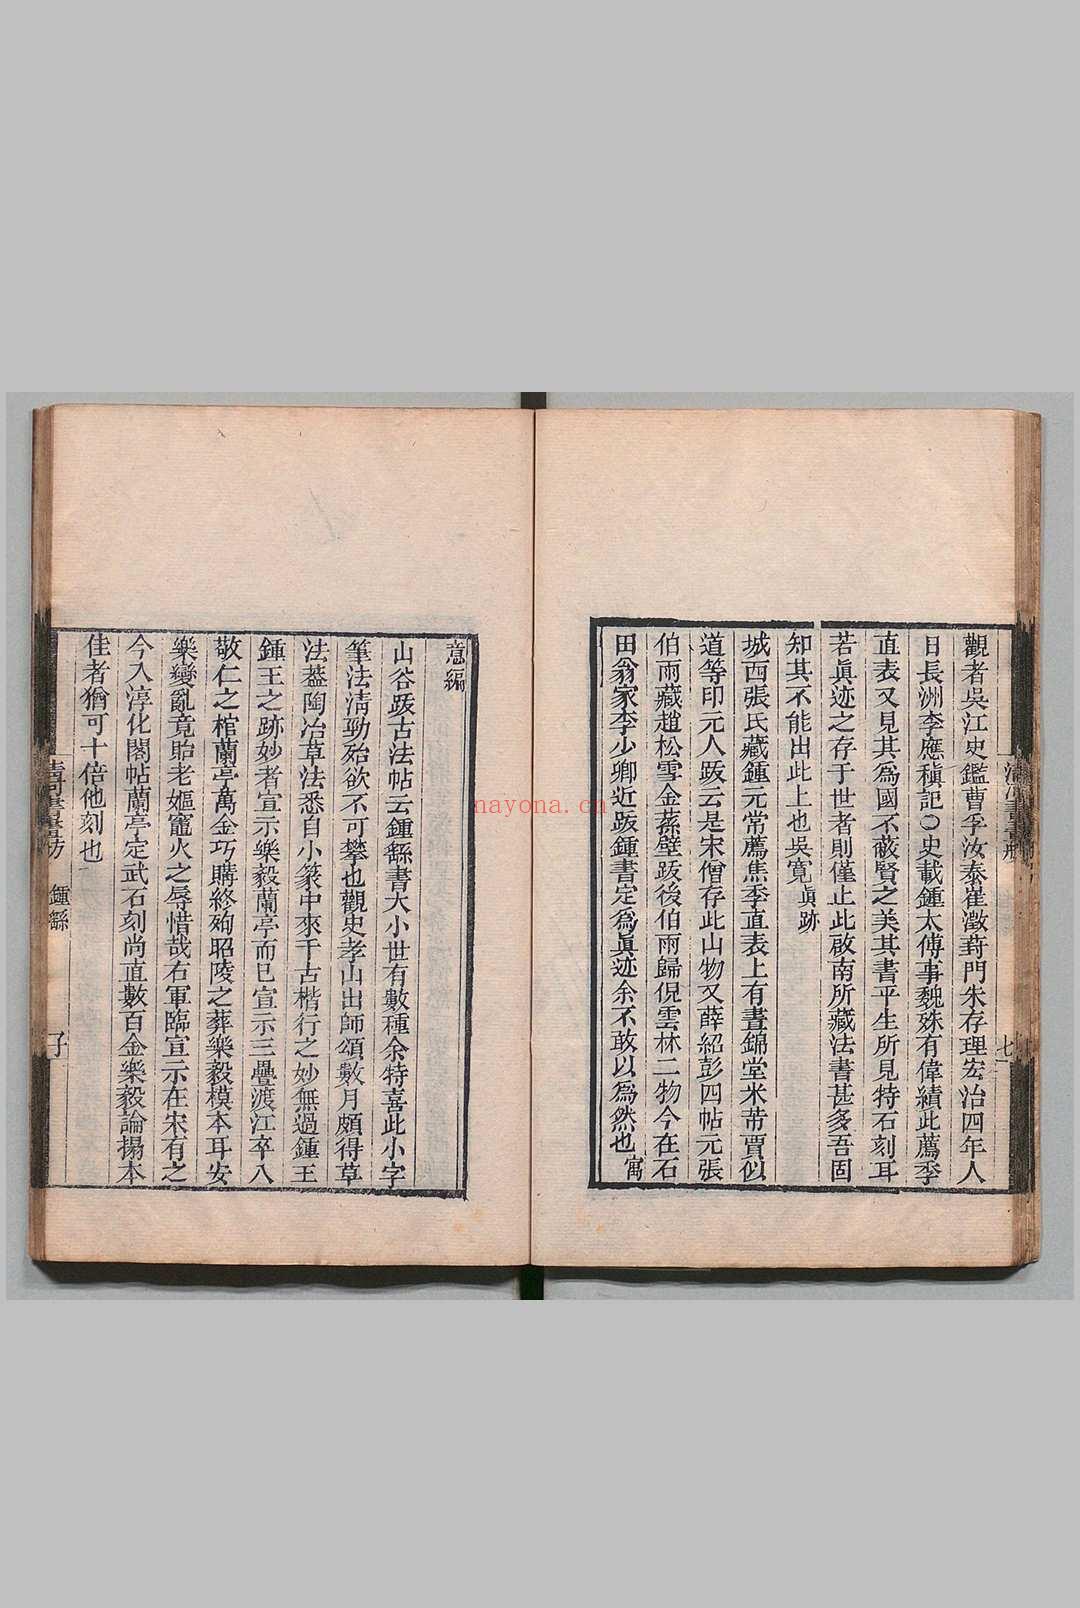 觀者吳江史鑑曹孚汝泰崔澂葑門朱存理宏治四年人
日長洲李應稹記〇史載鍾太傅事魏姝有偉績此薦季
直表又見其為國不蔽賢之美其書平生所見特石刻耳
若眞迹之存于世者則僅止此啟南所藏法書甚多吾固
知其不能出此上也吳寛眞跡
城西張氏藏鍾元常薦焦季直表上有晝錦堂米芾賈似
道等印元人䟦云是宋僧存此山物又薛紹彭四帖元張
伯雨藏趙松雪金蓀壁䟦後伯雨歸倪雲林二物今在石
田翁家李少卿近䟦鍾書定為眞迹余不敢以為然也 寓
意編
山谷䟦古法帖云鍾繇書大小世有數種余特喜此小字
筆法淸勁殆欲不可攀也觀史孝山出師頌數月頗得草
法葢陶冶草法悉自小篆中來千古楷行之妙無過鍾王
鍾王之跡妙者宣示樂毅蘭亭而已宣示三疊渡江卒入
敬仁之棺蘭亭萬金巧購終殉昭陵之葬樂毅模本耳安
樂變亂竟貽老嫗竈火之辱惜哉右軍臨宣示在宋有之
今入淳化閣帖蘭亭定武石刻尚直數百金樂毅論搨本
佳者猶可十倍他刻也
清河書畫舫 鍾繇 子
七
nayona.cn